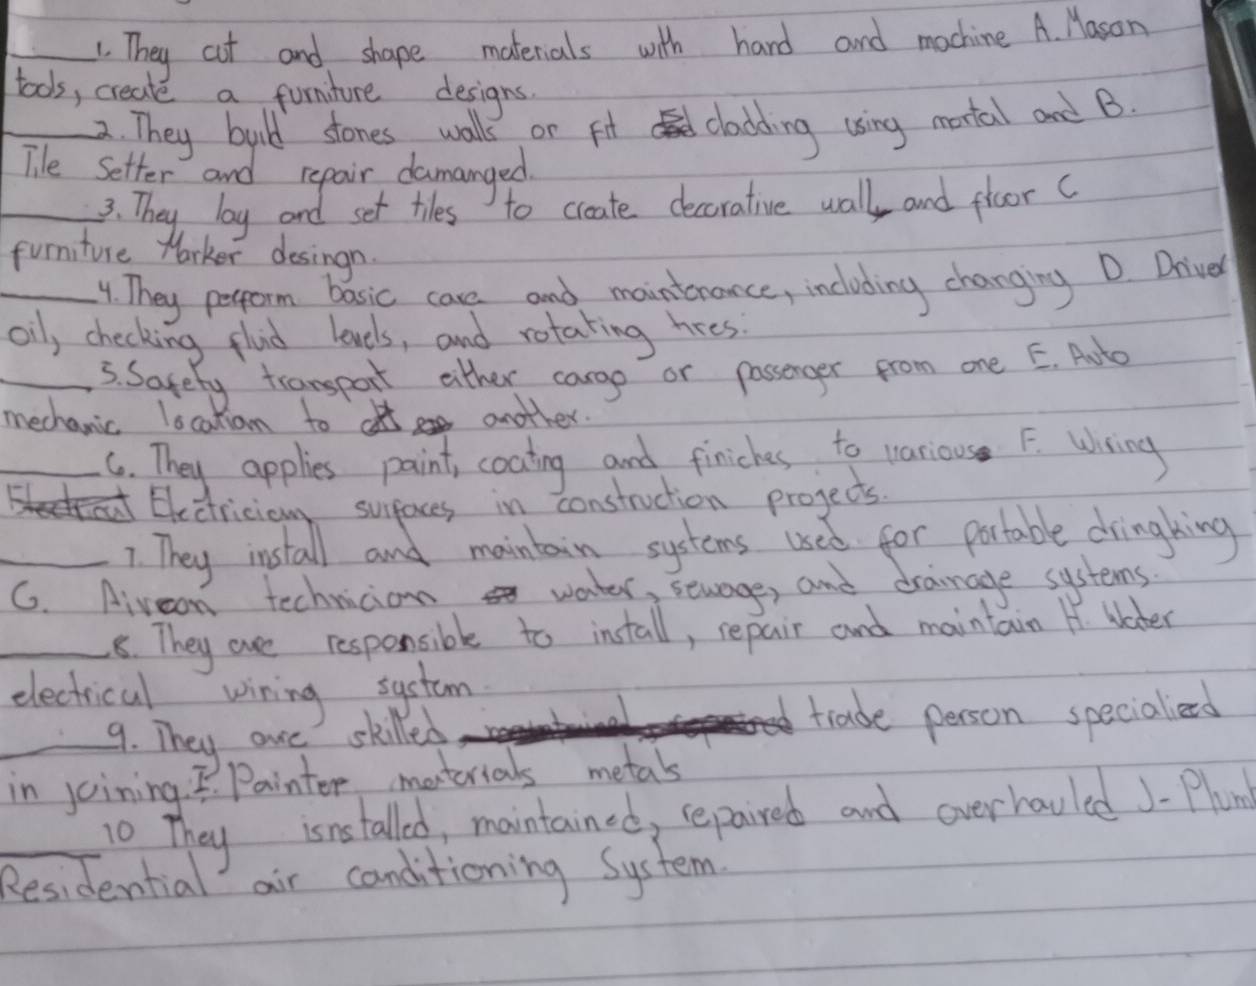 1. They cut and shape materials with hand and machine A. Mason
tools, create a furniture designs.
2. They build stones walls or fit cladding using mortal and B.
Tile Setter and repair damanged.
3. They lay and set tiles to create decorative wall and floor C
furniture Marker desingn.
4. They perform basic care and maintenance, including changing D. Driver
oil, checking fluid levels, and rotating tires.
5. Safety transport either cargo or passenger from one E. Auto
mechanic location to another.
6. They applies paint, coating and finiches to various F. Wiring
Electrician surfaces in construction projects.
7. They install and maintain systems used for portable dringking
G. Aircon technician water, sewage, and drainage systems.
8. They are responsible to install, repair and maintain H. Water
electrical wiring system
9. They are skilled trade person specialized
in joining I. Painter materials metals
10 They isnstalled, maintained, repaired and overhauled J- Plumb
Residential air conditioning System.